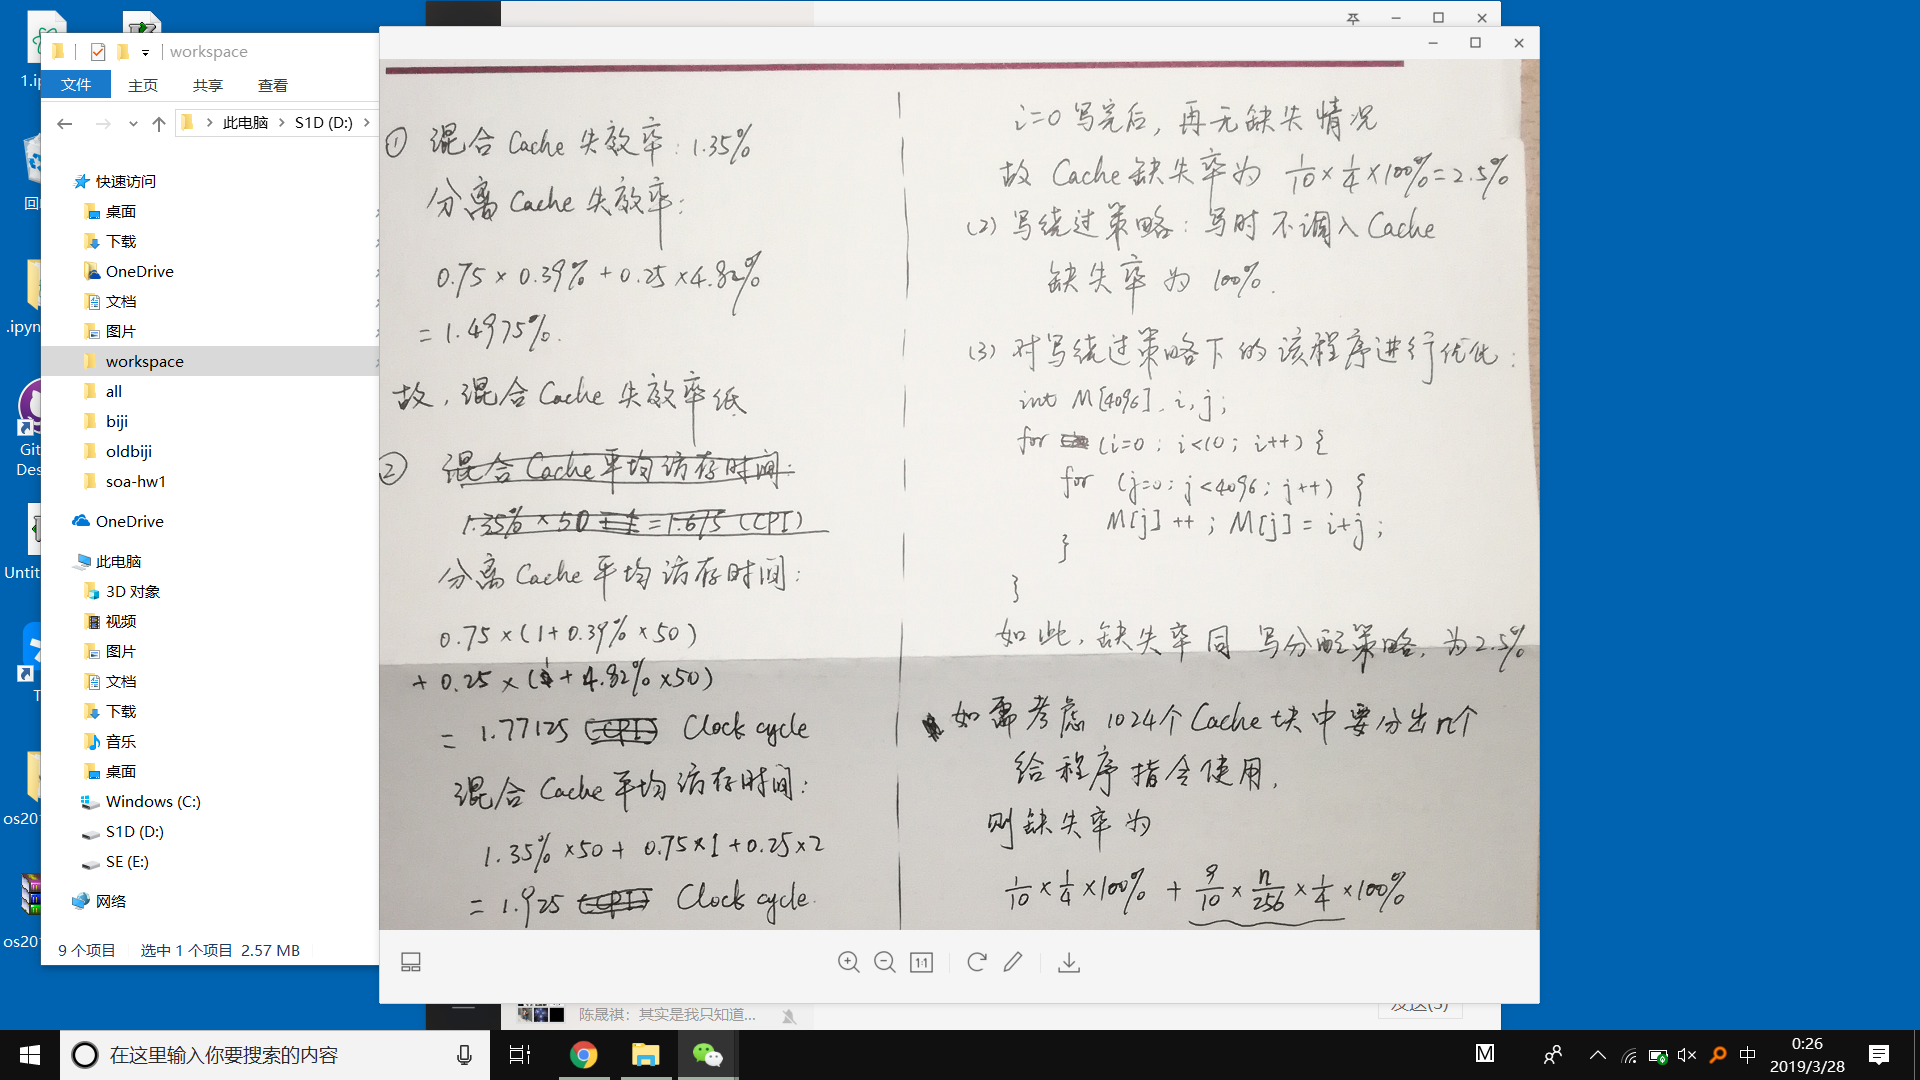 1.ip
回
.ipyn
Git
Des
Untit
T
os20
os20
workspace
文件
主页
共享
查看
此电脑
S1D (D:)
快速访问
桌面
下载
OneDrive
文档
图片
workspace
all
biji
oldbiji
soa-hw1
OneDrive
此电脑
3D 对象
视频
图片
文档
下载
音乐
桌面
Windows (C:)
S1D (D:)
SE (E:)
网络
9 个项目
选中 1 个项目 2.57 MB
① 混合 Cache 失效率: 1.35%
分离 Cache 失效率:
0.75 × 0.39% + 0.25 × 4.82%
= 1.4975%.
故, 混合 Cache 失效率低
② 混合 Cache 平均访存时间:
1.35% × 50 + 1 = 1.675 (CPI)
分离 Cache 平均访存时间:
0.75 × (1 + 0.39% × 50)
+ 0.25 × (1 + 4.82% × 50)
= 1.77125 (CPI) Clock cycle
混合 Cache 平均访存时间:
1.35% × 50 + 0.75 × 1 + 0.25 × 2
= 1.925 (CPI) Clock cycle.
i=0 写完后, 再无缺失情况
故 Cache 缺失率为 1/10 × 1/4 × 100% = 2.5%
(2) 写绕过策略: 写时不调入 Cache
缺失率为 100%.
(3) 对写绕过策略下的该程序进行优化:
int M[4096], i, j;
for (i=0; i<10; i++) {
for (j=0; j<4096; j++) {
M[j]++; M[j] = i+j;
}
}
如此, 缺失率同写分配策略, 为 2.5%
如需考虑 1024个 Cache 块中要分出 n个
给程序指令使用,
则缺失率为
1/10 × 1/4 × 100% + 9/10 × n/256 × 1/4 × 100%
1:1
陈晟祺: 其实是我只知道...
发送(S)
在这里输入你要搜索的内容
M
中
0:26
2019/3/28